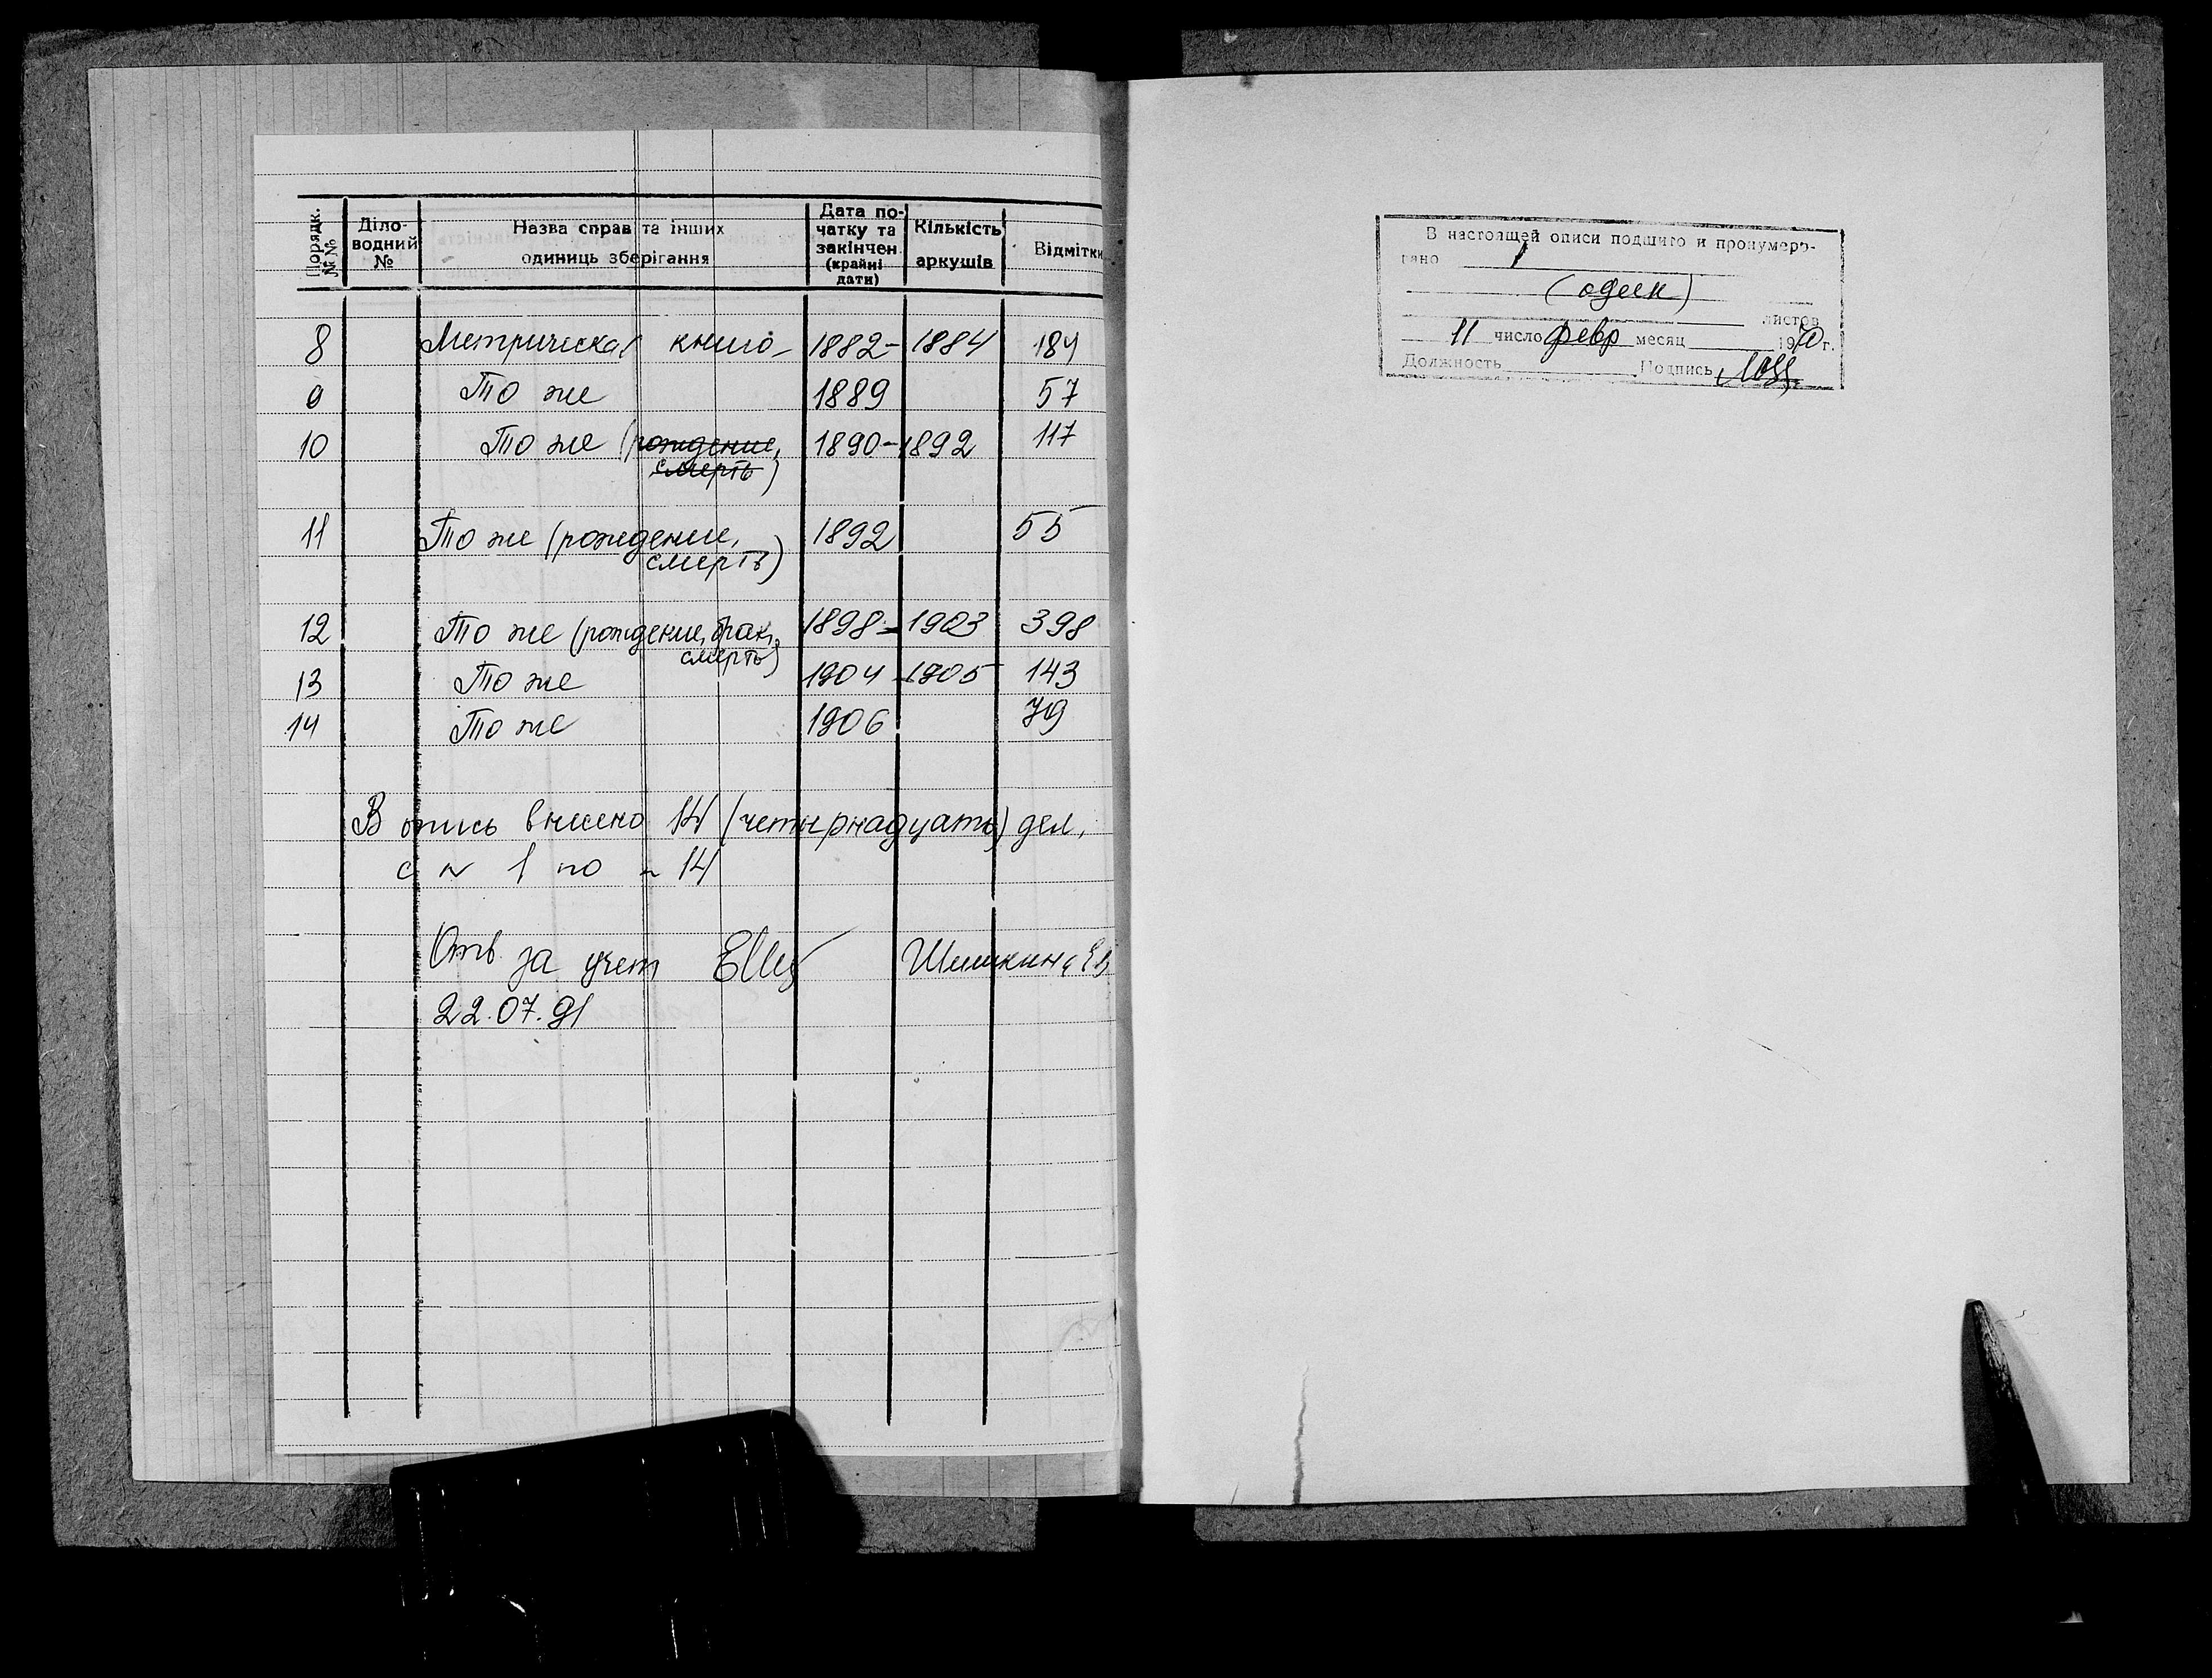 Порядк. №№
Діло-
водний
№
Назва справ та інших
одиниць зберігання
Дата по-
чатку та
закінчен.
(крайні
дати)
Кількість
аркушів
Відмітки
8 Метрическая книга 1882 - 1884 184
9 То же 1889 57
10 То же (рождение, 1890 - 1892 117
смерть)
11 То же (рождение, 1892 55
смерть)
12 То же (рождение, брак, 1898 - 1903 398
смерть)
13 То же 1904 - 1905 143
14 То же 1906 79
В опись внесено 14 (четырнадцать) дел,
с № 1 по № 14
Отв. за учет Шишкина
22.07.91
В настоящей описи подшито и пронумеро-
вано 1
(один)
листов
11 число февр месяц 1970 г.
Должность Подпись